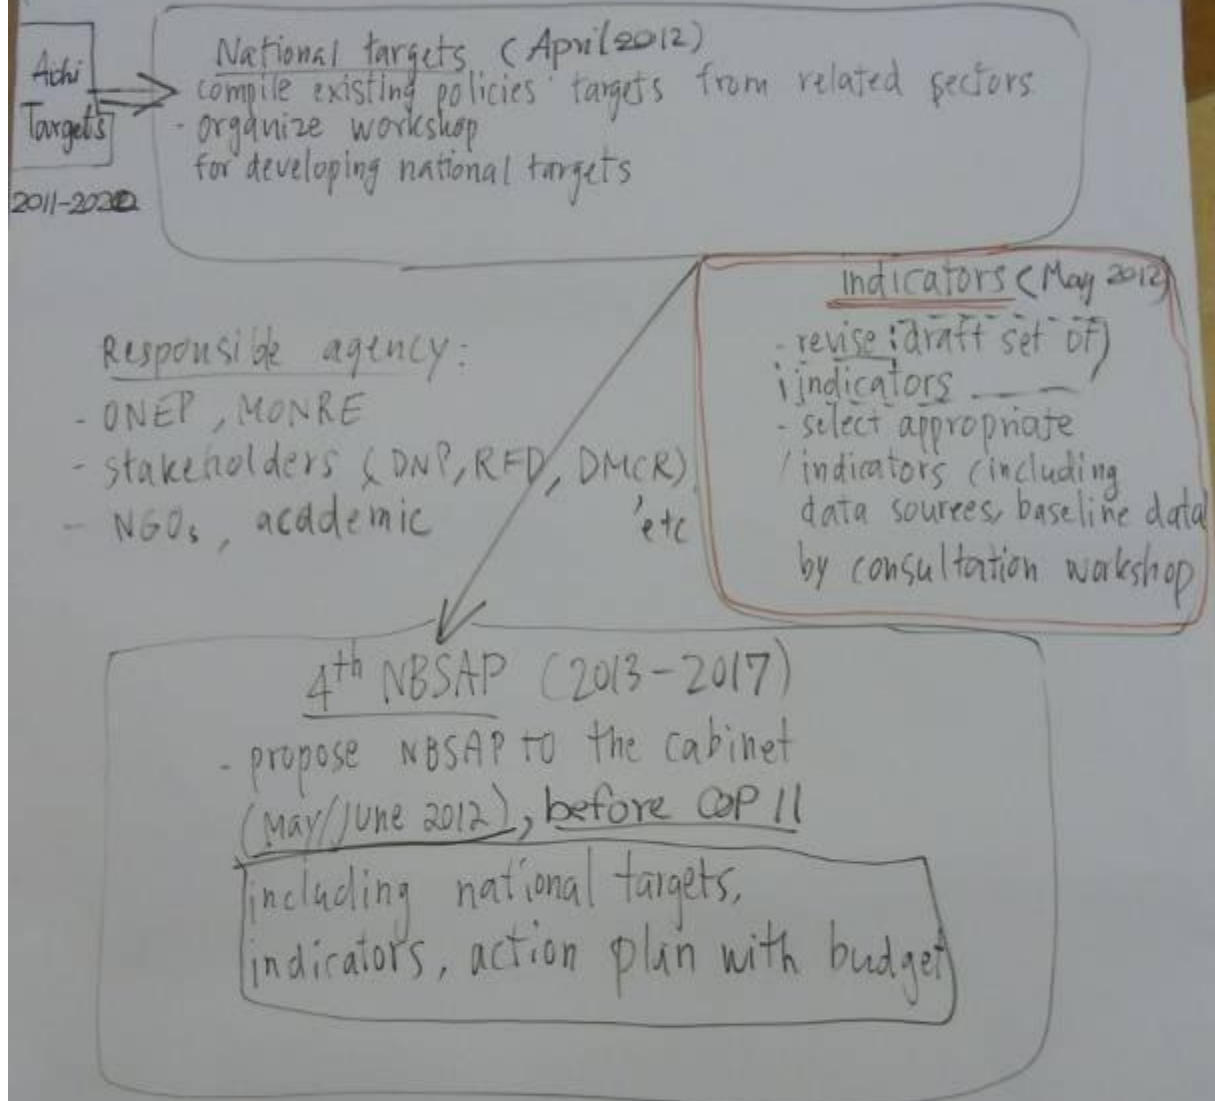 Achi
Targets
2011-2020
National targets (April 2012)
compile existing policies' targets from related sectors
- organize workshop
for developing national targets
indicators (May 2012)
- revise draft set of
indicators
- select appropriate
indicators (including
data sources, baseline data
by consultation workshop
Responsible agency:
- ONEP, MONRE
- stakeholders (DNP, RFD, DMCR)
etc
- NGOs, academic
4th NBSAP (2013-2017)
- propose NBSAP to the cabinet
(May/June 2012), before COP 11
including national targets,
indicators, action plan with budget